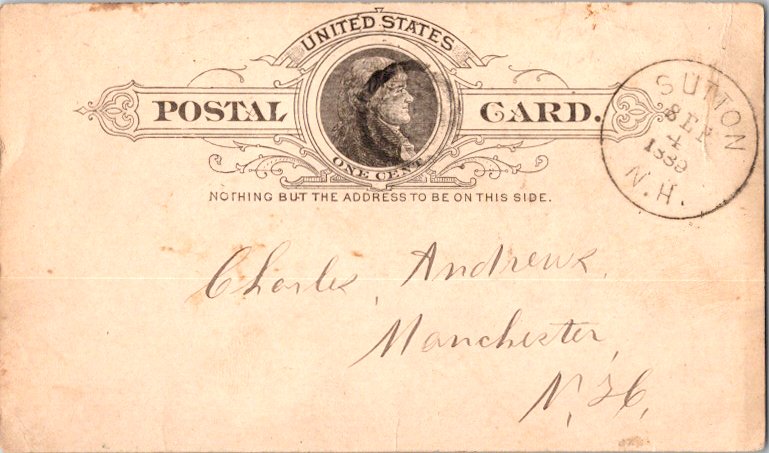 UNITED STATES
POSTAL CARD.
ONE CENT
NOTHING BUT THE ADDRESS TO BE ON THIS SIDE.
SUTTON
SEP
4
1889
N.H.
Charles Andrews,
Manchester,
N.H.